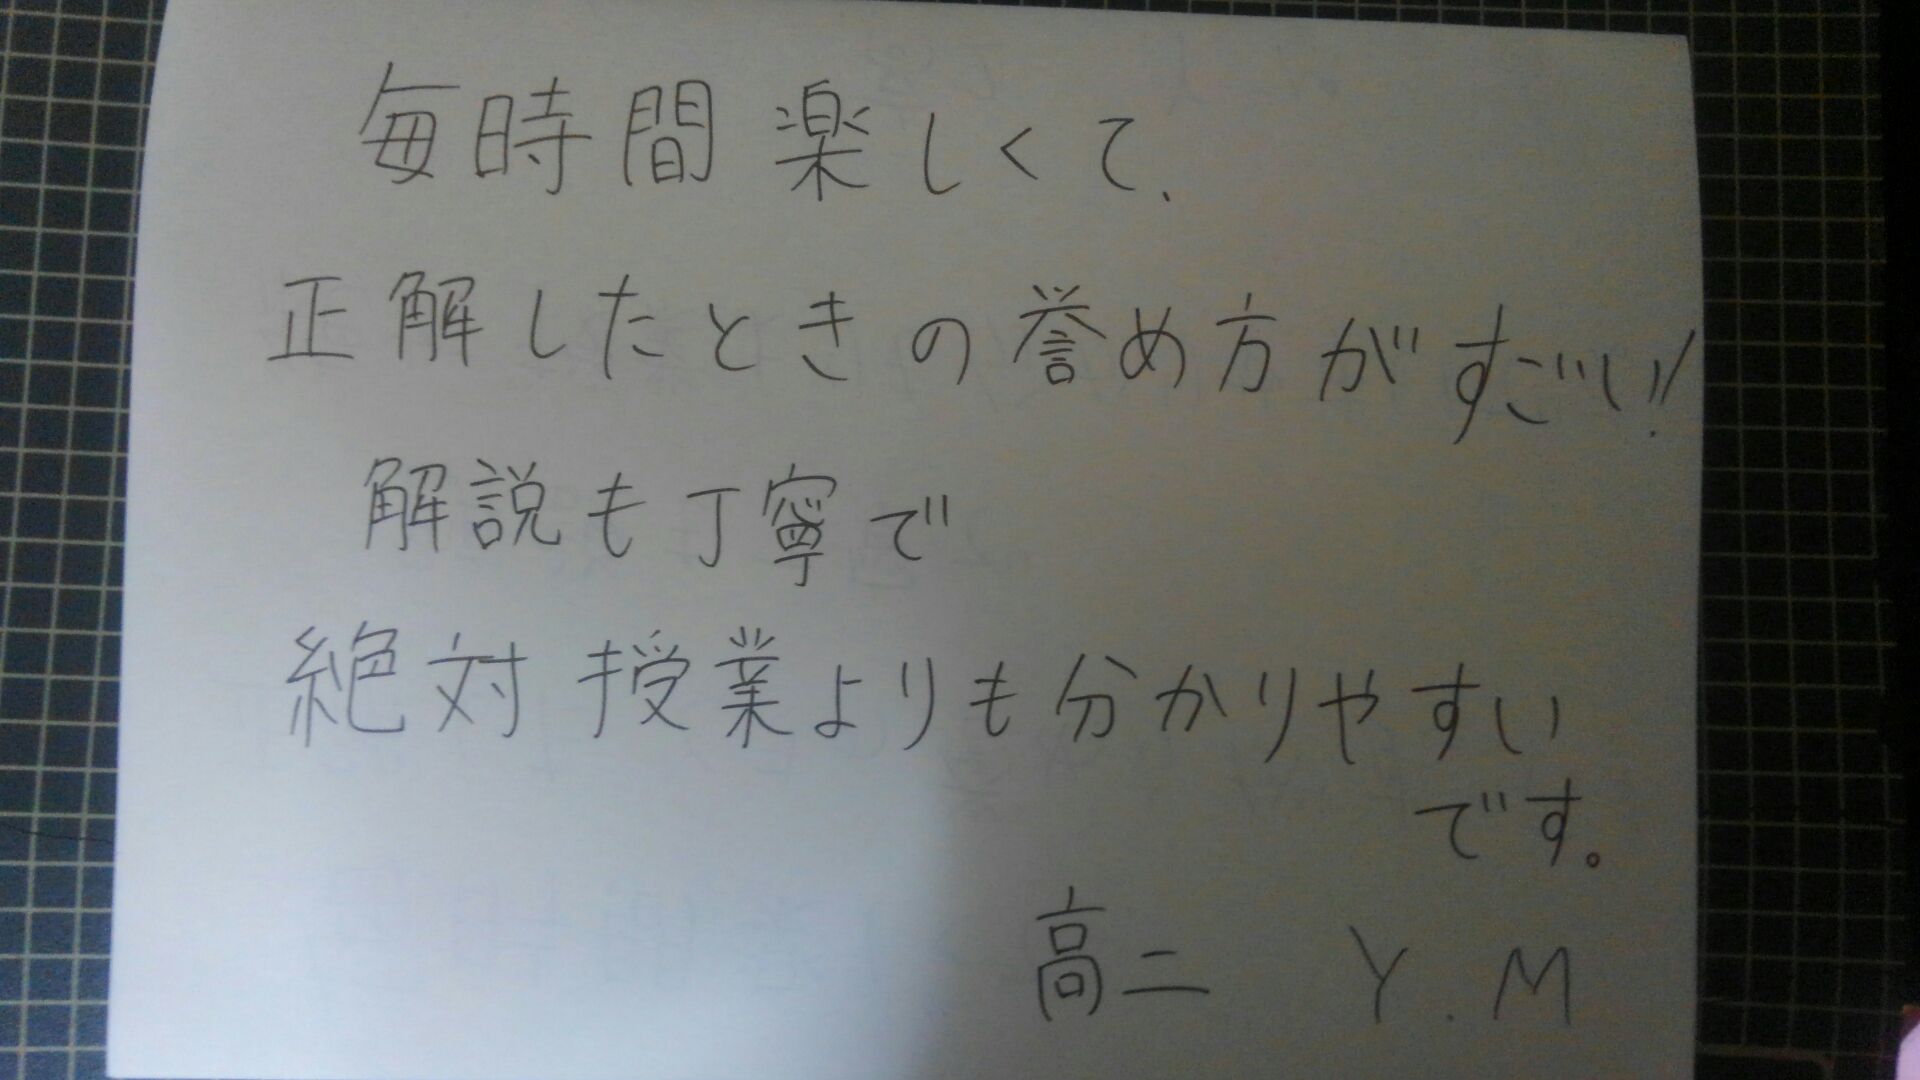 毎時間楽しくて、
正解したときの誉め方がすごい!
解説も丁寧で
絶対授業よりも分かりやすい
です。
高二 Y.M